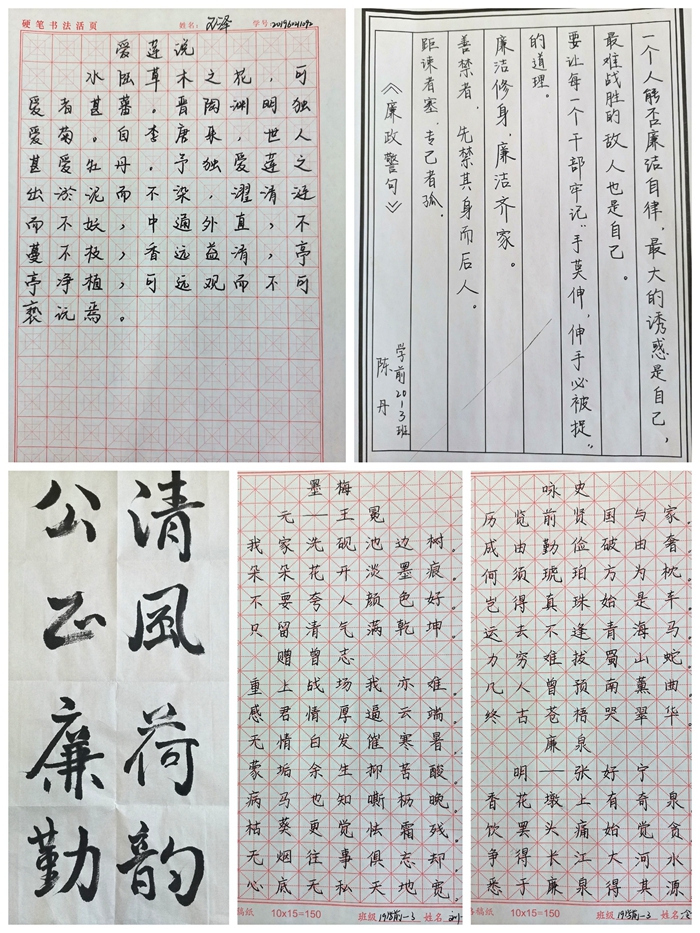 硬笔书法活页 姓名: 学号:
爱莲说
水陆草木之花,可
爱者甚蕃。晋陶渊明独
爱菊。自李唐来,世人
甚爱牡丹。予独爱莲之
出淤泥而不染,濯清涟
而不妖,中通外直,不
蔓不枝,香远益清,亭
亭净植,可远观而不可
亵玩焉。
一个人能否廉洁自律,最大的诱惑是自己,
最难战胜的敌人也是自己。
要让每一个干部牢记"手莫伸,伸手必被捉"
的道理。
廉洁修身,廉洁齐家。
善禁者,先禁其身而后人。
距谏者塞,专己者孤。
《廉政警句》
学前2013班
陈丹
清风荷韵
公正廉勤
墨梅
元——王冕
我家洗砚池边树。
朵朵花开淡墨痕
不要夸人颜色好
只留清气满乾坤.
赠曾志
重上战场我亦难.
感君情厚逼云端
无情白发催寒暑
蒙垢余生抑苦酸
病马也知嘶枥晚
枯葵更觉怯霜残.
无烟往事俱忘却
心底无私天地宽.
稿纸 10x15=150 班级 19学前一3 姓名
咏史
历览前贤国与家
成由勤俭破由奢
何须琥珀方为枕
岂得真珠始是车
运去不逢青海马
力穷难拔蜀山蛇
几人曾预南薰曲
终古苍梧哭翠华
廉泉
明——张好宁
香花墩上有奇泉
饮罢头痛始觉贪
争得长江大河水
悉于廉泉得其源
稿纸 10x15=150 班级 19学前一3 姓名